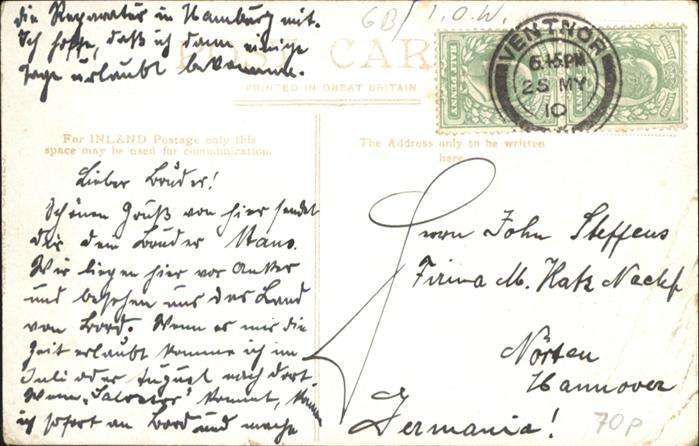 die Reparatur in Hamburg mit.
Ich hoffe, daß ich dann einige
Tage erlaubt bekomme.
GB/ I.O.W.
POST CAR
PRINTED IN GREAT BRITAIN
HALF PENNY
VENTNOR
6.15 PM
25 MY
10
For INLAND Postage only this
space may be used for communication.
The Address only to be written
here.
Lieber Bruder!
Schönen Gruß von hier sendet
Dir dein Bruder Hans.
Wir liegen hier vor Anker
und besehen uns das Land
von Bord. Wenn es mir die
Zeit erlaubt komme ich im
Juli oder August nach dort
Wenn "Salvator" kommt,
ich sofort an Bord und mache
Herrn John Steffens
Firma M. Katz Nachf
Nörten
Hannover
Germania!
70p